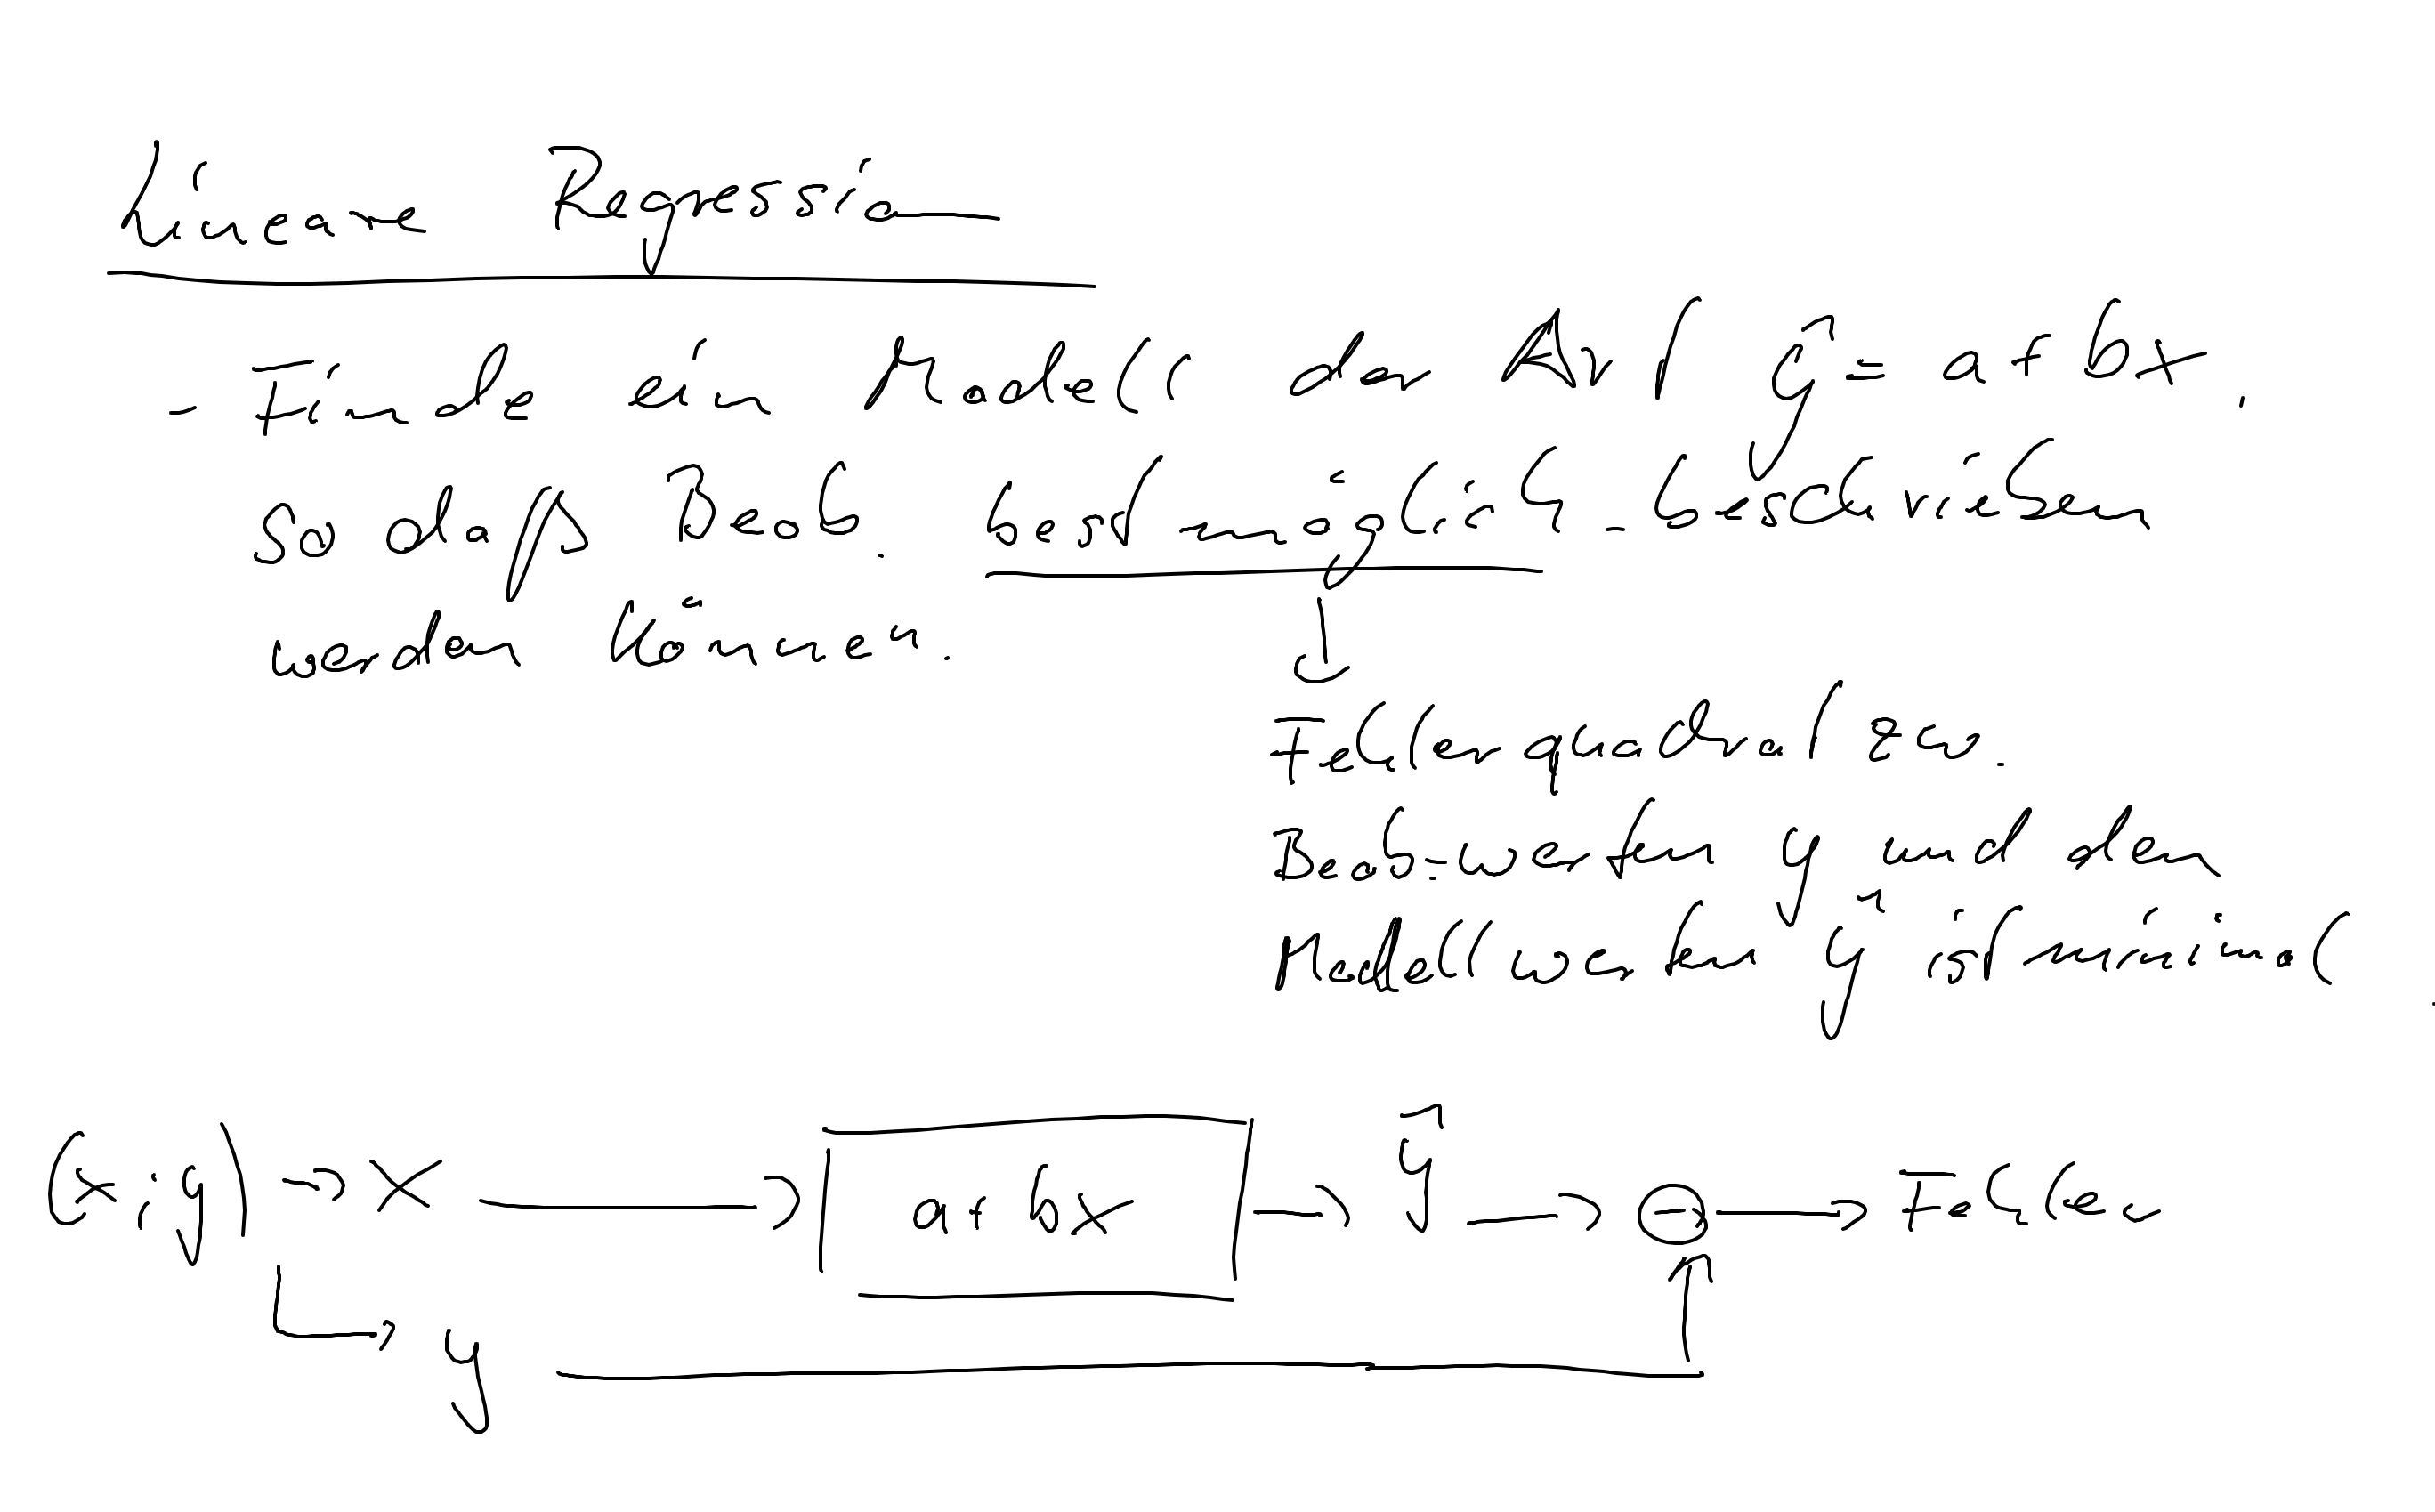 Lineare Regression
- Finde ein Modell der Art ŷ = a + bx,
so daß Beob. bestmöglich beschrieben
werden können.
Fehlerquadrat zw.
Beob.werten y und den
Modellwerten ŷ ist minimal.
(x,y) → x → a+bx → ŷ → ⊖ → Fehler
y